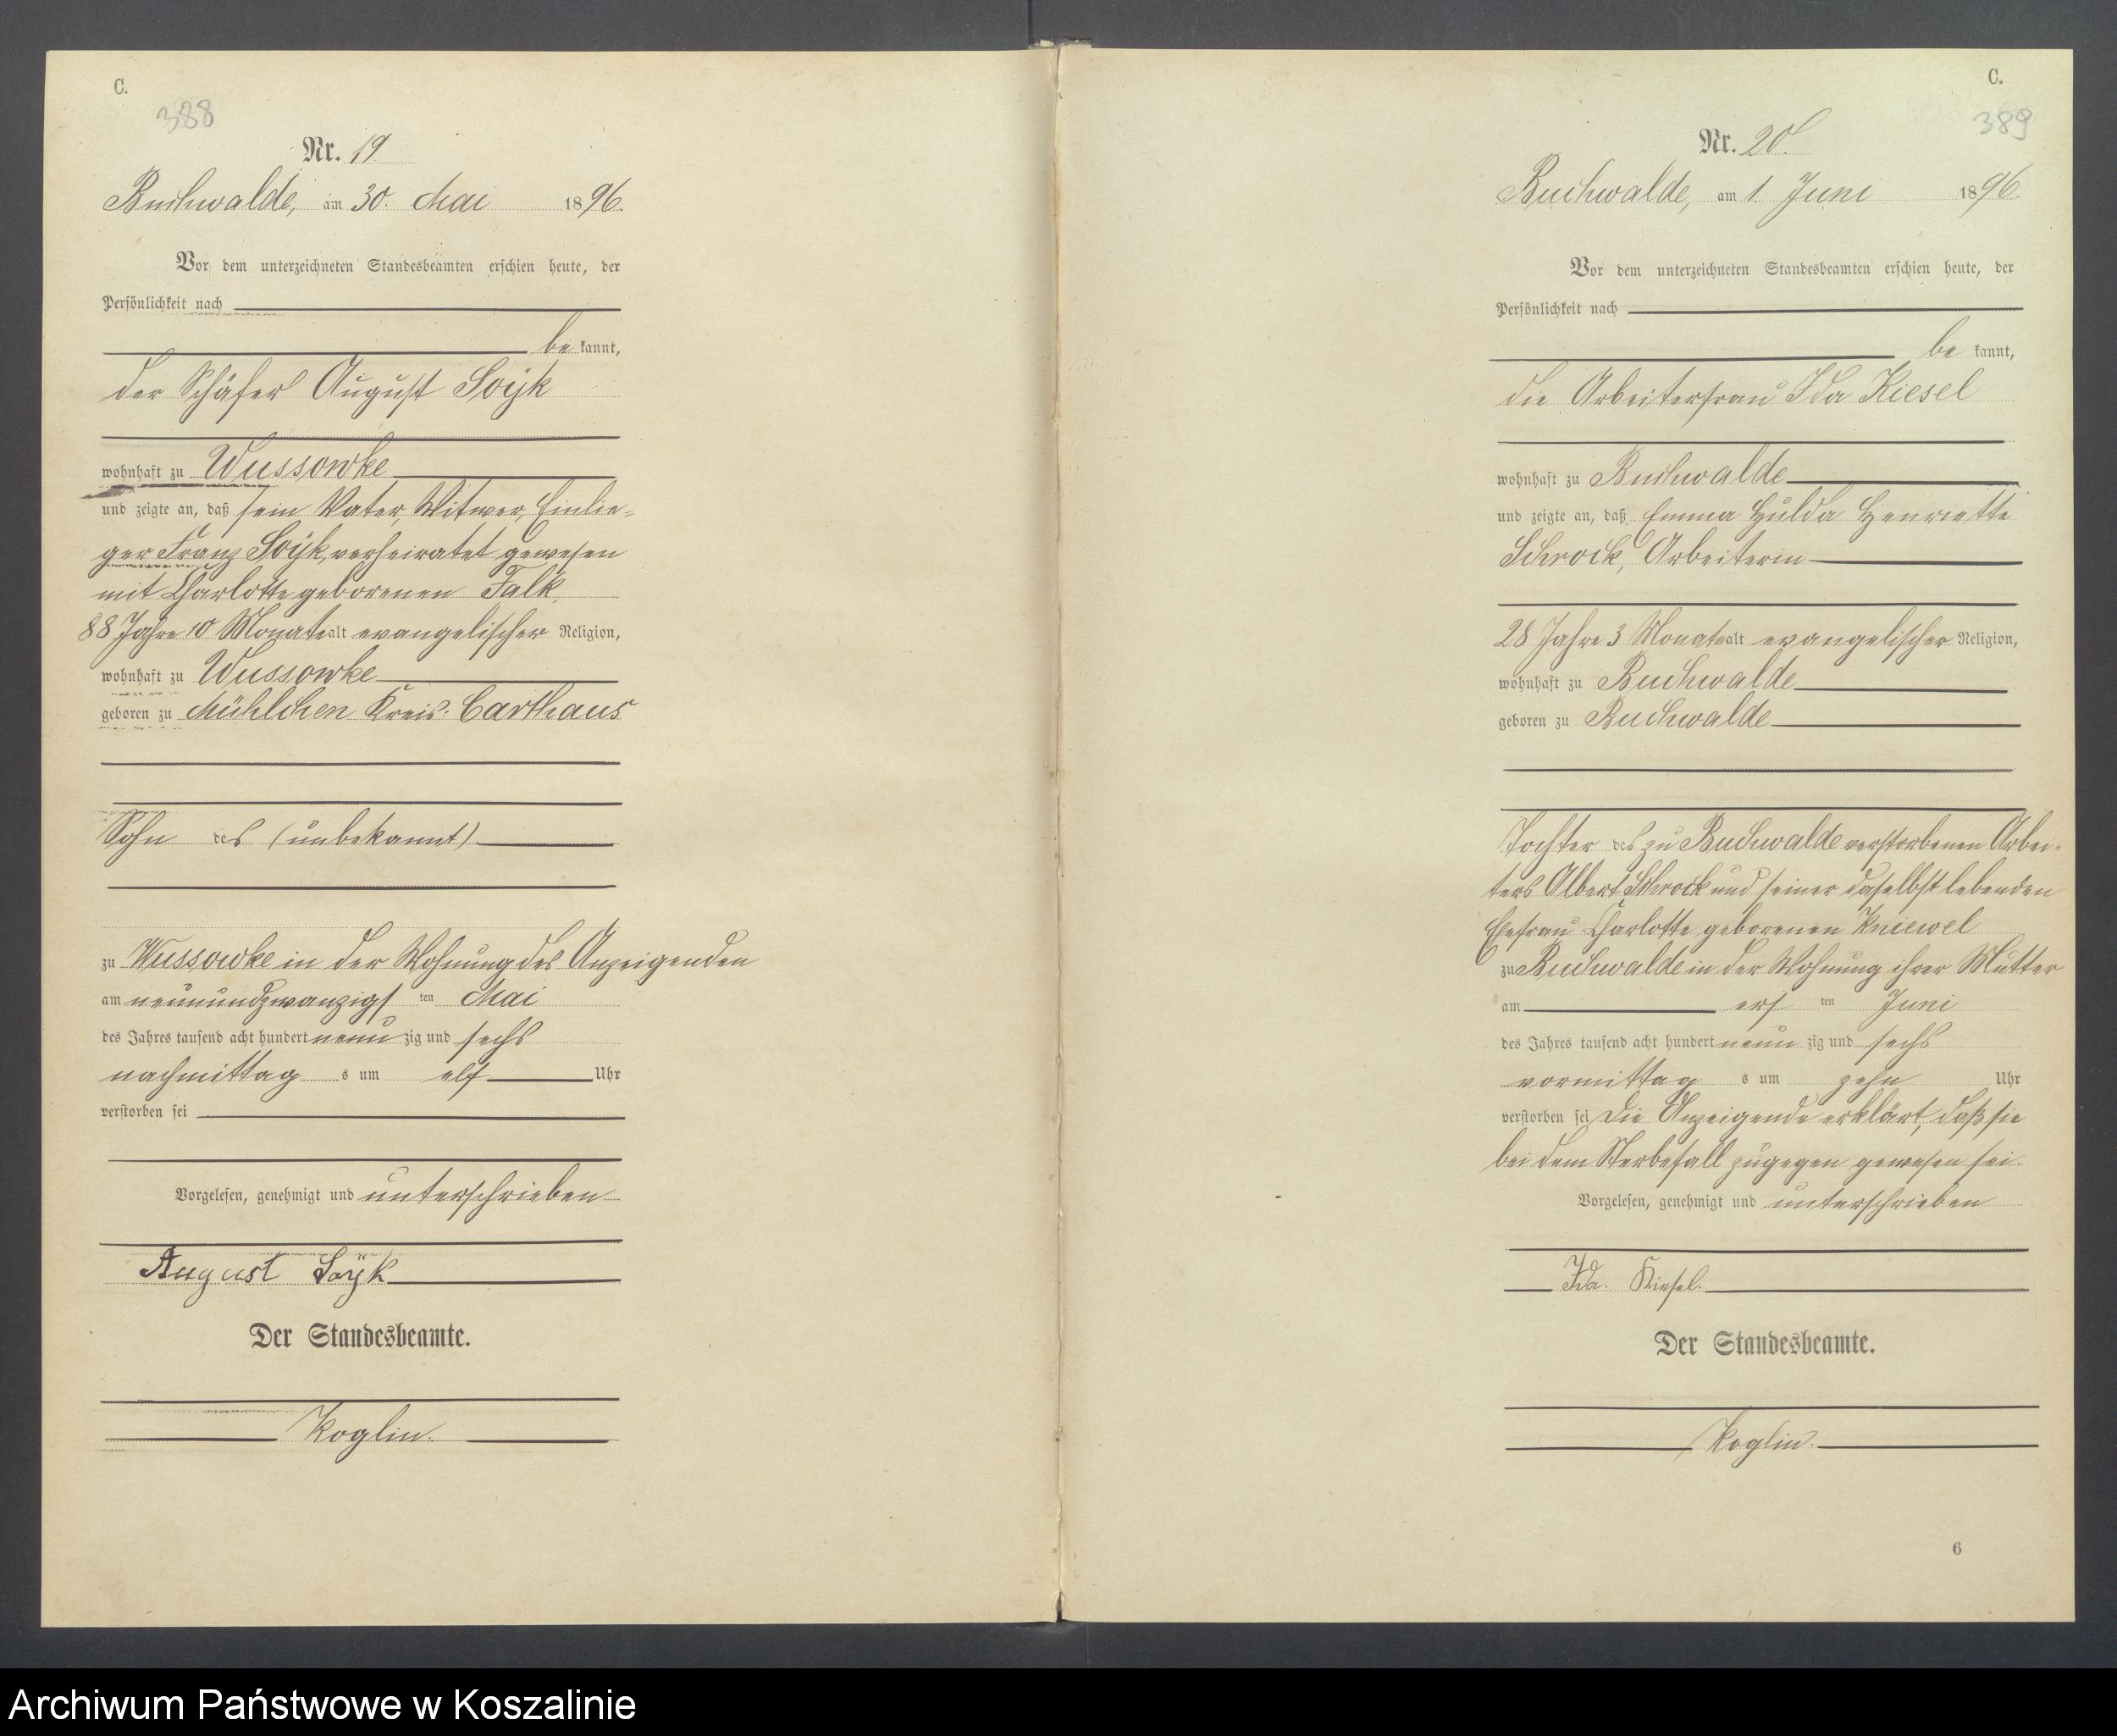 C.
388
Nr. 19
Buchwalde, am 30. Mai 1896.
Vor dem unterzeichneten Standesbeamten erschien heute, der
Persönlichkeit nach
be kannt,
der Schäfer August Soÿk
wohnhaft zu Wussowke
und zeigte an, daß sein Vater, Witwer, Einlie=
ger Franz Soÿk, verheiratet gewesen
mit Charlotte geborenen Falk,
88 Jahre 10 Monate alt evangelischer Religion,
wohnhaft zu Wussowke
geboren zu Mühlchen Kreis: Carthaus
Sohn des (unbekannt)
zu Wussowke in der Wohnung des Anzeigenden
am neunundzwanzigs ten Mai
des Jahres tausend acht hundert neun zig und sechs
nachmittag s um elf Uhr
verstorben sei
Vorgelesen, genehmigt und unterschrieben
August Soÿk
Der Standesbeamte.
Koglin.
C.
389
Nr. 20.
Buchwalde, am 1. Juni 1896
Vor dem unterzeichneten Standesbeamten erschien heute, der
Persönlichkeit nach
be kannt,
die Arbeiterfrau Ida Kiesel
wohnhaft zu Buchwalde
und zeigte an, daß Emma Hulda Henriette
Schrock, Arbeiterin
28 Jahre 3 Monate alt evangelischer Religion,
wohnhaft zu Buchwalde
geboren zu Buchwalde
Tochter des zu Buchwalde verstorbenen Arbei=
ters Albert Schrock und seiner daselbst lebenden
Ehefrau Charlotte geborenen Kniewel
zu Buchwalde in der Wohnung ihrer Mutter
am ers ten Juni
des Jahres tausend acht hundert neun zig und sechs
vormittag s um zehn Uhr
verstorben sei Die Anzeigende erklärt, daß sie
bei dem Sterbefall zugegen gewesen sei.
Vorgelesen, genehmigt und unterschrieben
Ida. Kiesel.
Der Standesbeamte.
Koglin.
6
Archiwum Państwowe w Koszalinie